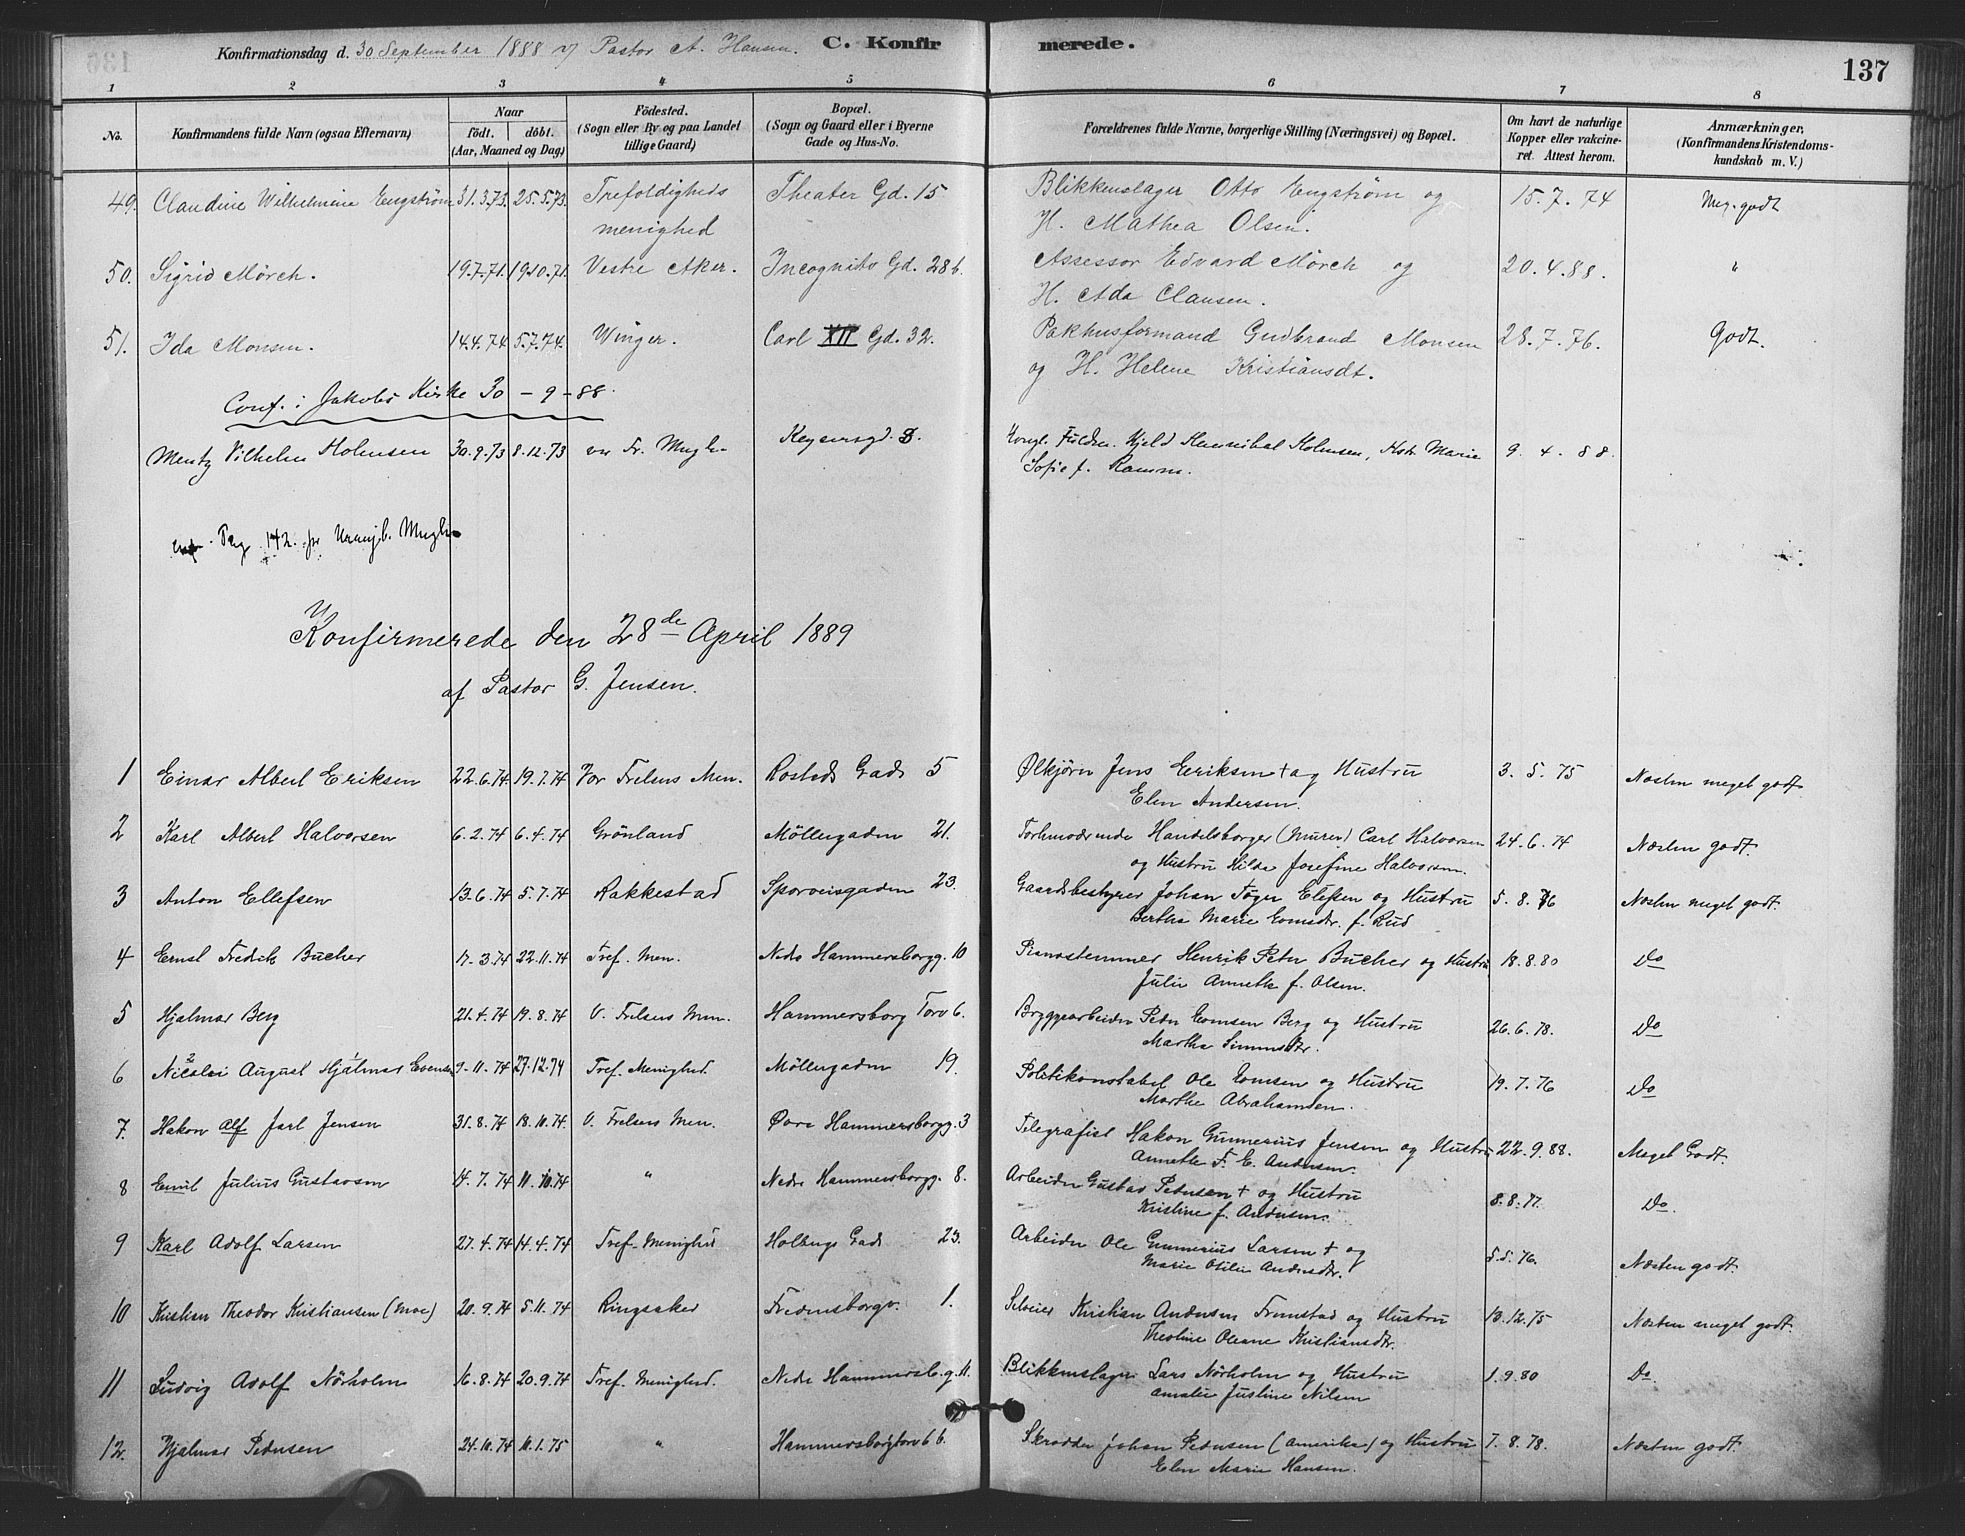 Konfirmationsdag d. 30 September 1888 v Pastor A. Hansen. C. Konfirmerede. 137
1 2 3 4 5 6 7 8
No. Konfirmandens fulde Navn (ogsaa Efternavn) Naar födt. döbt. (Aar, Maaned og Dag) Födested. (Sogn eller By og paa Landet tillige Gaard) Bopæl. (Sogn og Gaard eller i Byerne Gade og Hus-No. Forældrenes fulde Navne, borgerlige Stilling (Næringsvei) og Bopæl. Om havt de naturlige Kopper eller vakcineret. Attest herom. Anmærkninger, (Konfirmandens Kristendomskundskab m. V.)
49. Claudine Wilhelmine Engström 31.3.73. 25.5.73. Trefoldigheds menighed Theater Gd. 15 Blikkenslager Otto Engstrøm og H. Mathea Olsen. 15.7.74 Meg. godt
50. Sigrid Mörch. 19.7.71. 19.10.71. Vestre Aker. Incognito Gd. 28 b. Assessor Edvard Mörch og H. Ada Clausen. 20.4.88. "
51. Ida Monsen. 14.4.74 5.7.74. Winger. Carl XII Gd. 32. Pakhusformand Gudbrand Monsen og H. Helene Kristiansdt. 28.7.76. Godt.
Conf. i Jakobs Kirke 30 - 9 - 88.
Mentz Vilhelm Holmsen 30.9.73 8.12.73 vor Fr. Mngh. Keysersgd. 8. Kongl. Fuldm. Kjeld Hannibal Holmsen, Hstr Marie Sofie f. Ramm. 9.4.88.
Pag. 142. Mngh.
Konfirmerede den 28de April 1889
af Pastor G. Jensen.
1 Einar Albert Eriksen 22.6.74 19.7.74 Vor Frelsers Men. Rosteds Gade 5 Ølkjörer Jens Eeriksen + og Hustru Elen Andersen. 3.5.75 Næsten meget godt
2 Karl Albert Halvorsen 6.2.74 6.4.74 Grönland Möllergaden 21. Forhenværende Handelsborger (Murer) Carl Halvorsen og Hustru Hilda Josefine Halvorsen. 24.6.74 Næsten godt.
3 Anton Ellefsen 13.6.74 5.7.74 Rakkestad Sporveisgaden 23. Gaardsbestyrer Johan Töger Elefsen og Hustru Bertha Marie f. Rud 5.8.76 Næsten meget godt.
4 Ernst Fredrik Bucher 17.3.74 22.11.74 Tref. Men. Nedre Hammersborgg. 10 Pianostemmer Henrik Peter Bucher og Hustru Julie Annette f. Olsen. 18.8.80 Do
5 Hjalmar Berg 21.4.74 19.8.74 V. Frelsers Men. Hammersborg Torv 6. Bryggearbeider Peder Evensen Berg og Hustru Martha Simensdtr. 26.6.78. Do
6 Nicolai August Hjalmar Evensen 9.11.74 27.12.74 Tref. Menighed. Möllergaden 19. Politikonstabel Ole Evensen og Hustru Marthe Abrahamsen. 19.7.76 Do
7. Hakon Alf Jarl Jensen 31.8.74 18.10.74. V. Frelsers Men. Øvre Hammersborgg. 3 Telegrafist Hakon Gunnerius Jensen og Hustru Annette F. E. Andersen. 22.9.88. Meget Godt.
8 Emil Julius Gustavsen 14.7.74 11.10.74 " Nedre Hammersborgg. 8. Arbeider Gustav Pedersen + og Hustru Kristine f. Andersen. 8.8.77. Do.
9 Karl Adolf Larsen 27.4.74 14.4.74 Tref. Menighed Holbergs Gade 23. Arbeider Ole Gunnerius Larsen + og Marie Otilie Andersdtr. 5.5.76. Næsten godt.
10 Kristian Theodor Kristiansen (Moe) 20.9.74 5.11.74 Ringsaker Fredensborgv. 1. Selveier Kristian Andersen Fremstad og Hustru Theoline Oleane Kristiansdtr. 13.12.75 Næsten meget godt.
11 Ludvig Adolf Nörholm 16.8.74 20.9.74 Tref. Menighed. Nedre Hammersb.g. 11. Blikkenslager Lars Nörholm og Hustru Amalie Justine Nilsen 1.9.80 Do.
12. Hjalmar Pedersen 24.10.74 10.1.75 " Hammersborgtorv 6 b. Skrædder Johan Pedersen (Amerika) og Hustru Elen Marie Hansen. 7.8.78. Næsten godt.